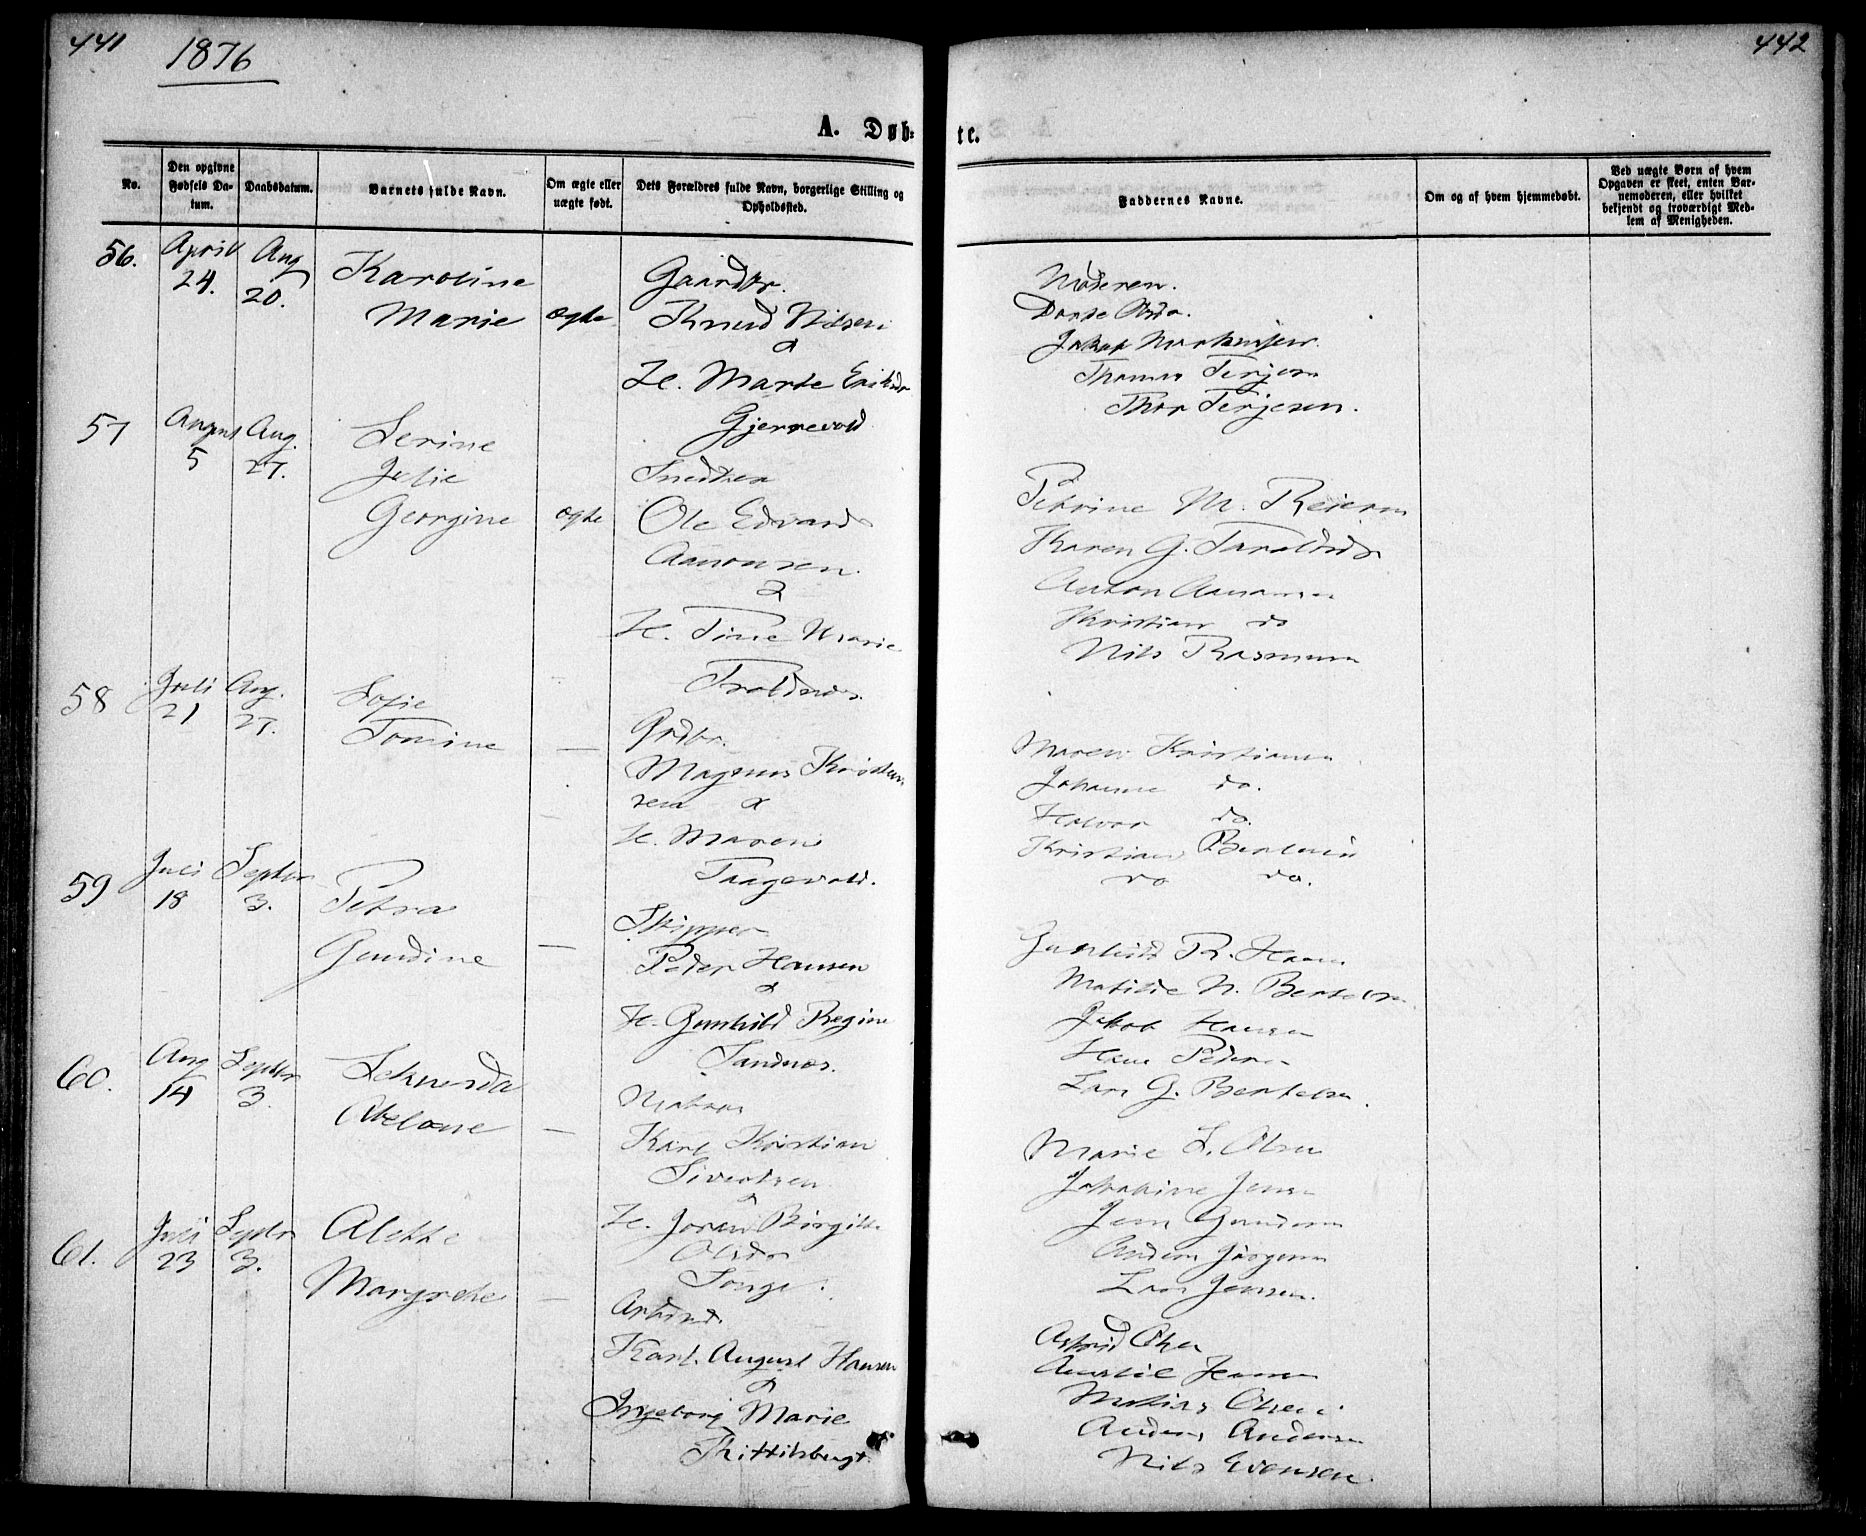 441
1876
442
A. Døb-
te.
No.
Den opgivne Fødsels Da-tum.
Daabsdatum.
Barnets fulde Navn.
Om ægte eller uægte født.
Dets Forældres fulde Navn, borgerlige Stilling og Opholdssted.
Faddernes Navne.
Om og af hvem hjemmedøbt.
Ved uægte Børn af hvem Opgaven er skeet, enten Bar-nemoderen, eller hvilket bekjendt og troværdigt Med-lem af Menigheden.
56.
April 24.
Aug 20.
Karoline
Marie
ægte
Gaardbr.
Knud Nilsen
&
H. Marte
Gjerrevold
Moderen.
Thomas Terjesen
Thor Terjesen.
57
August 5
Aug. 27.
Serine
Julie
Georgine
ægte
Snedker
Ole Edvard
Aanonsen.
&
H. Tine Marie
Froldnæs.
Petrine M. Reiersen
Karen G.
Anton Aanonsen
Kristian do
Nils Rasmussen
58
Juli 21
Aug. 27.
Sofie
Tomine
—
Grdbr.
Magnus Kristian
sen &
H. Maren
Taagevold.
Maren Kristiansen
Johanne do.
Halvor do.
Kristian
do do.
59
Juli 18
Septbr 3.
Petra
Gundine
—
Skipper
Peder Hansen
&
H. Gunhild Regine
Sandnæs.
Gunhild R. Hansen
Matilde N. Bertelsen
Jakob Hansen
Hans Pedersen
Lars G. Bertelsen.
60.
Aug 14
Septbr 3.
Abelone
—
Matros
Karl Kristian
Sivertsen
&
H. Joren Birgitte
Olsdr
Songe.
Marie L. Olsen
Jokobine Jensen
Jens Gundersen
Anders Jørgensen
Lars Jensen.
61.
Juli 23
Septbr 3.
Alette
Margrete
—
Arbeid.
Karl August Hansen
&
Ingeborg Marie
Kittilsbugt.
Astrid Olsen
Mathias Olsen
Anders Andersen
Nils Evensen.